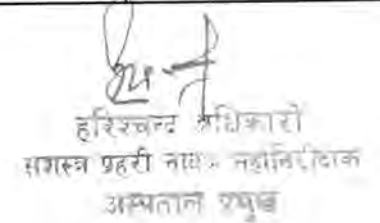 हरिश्चन्द्र अधिकारी
सशस्त्र प्रहरी नायब महानिरीक्षक
अस्पताल प्रमुख